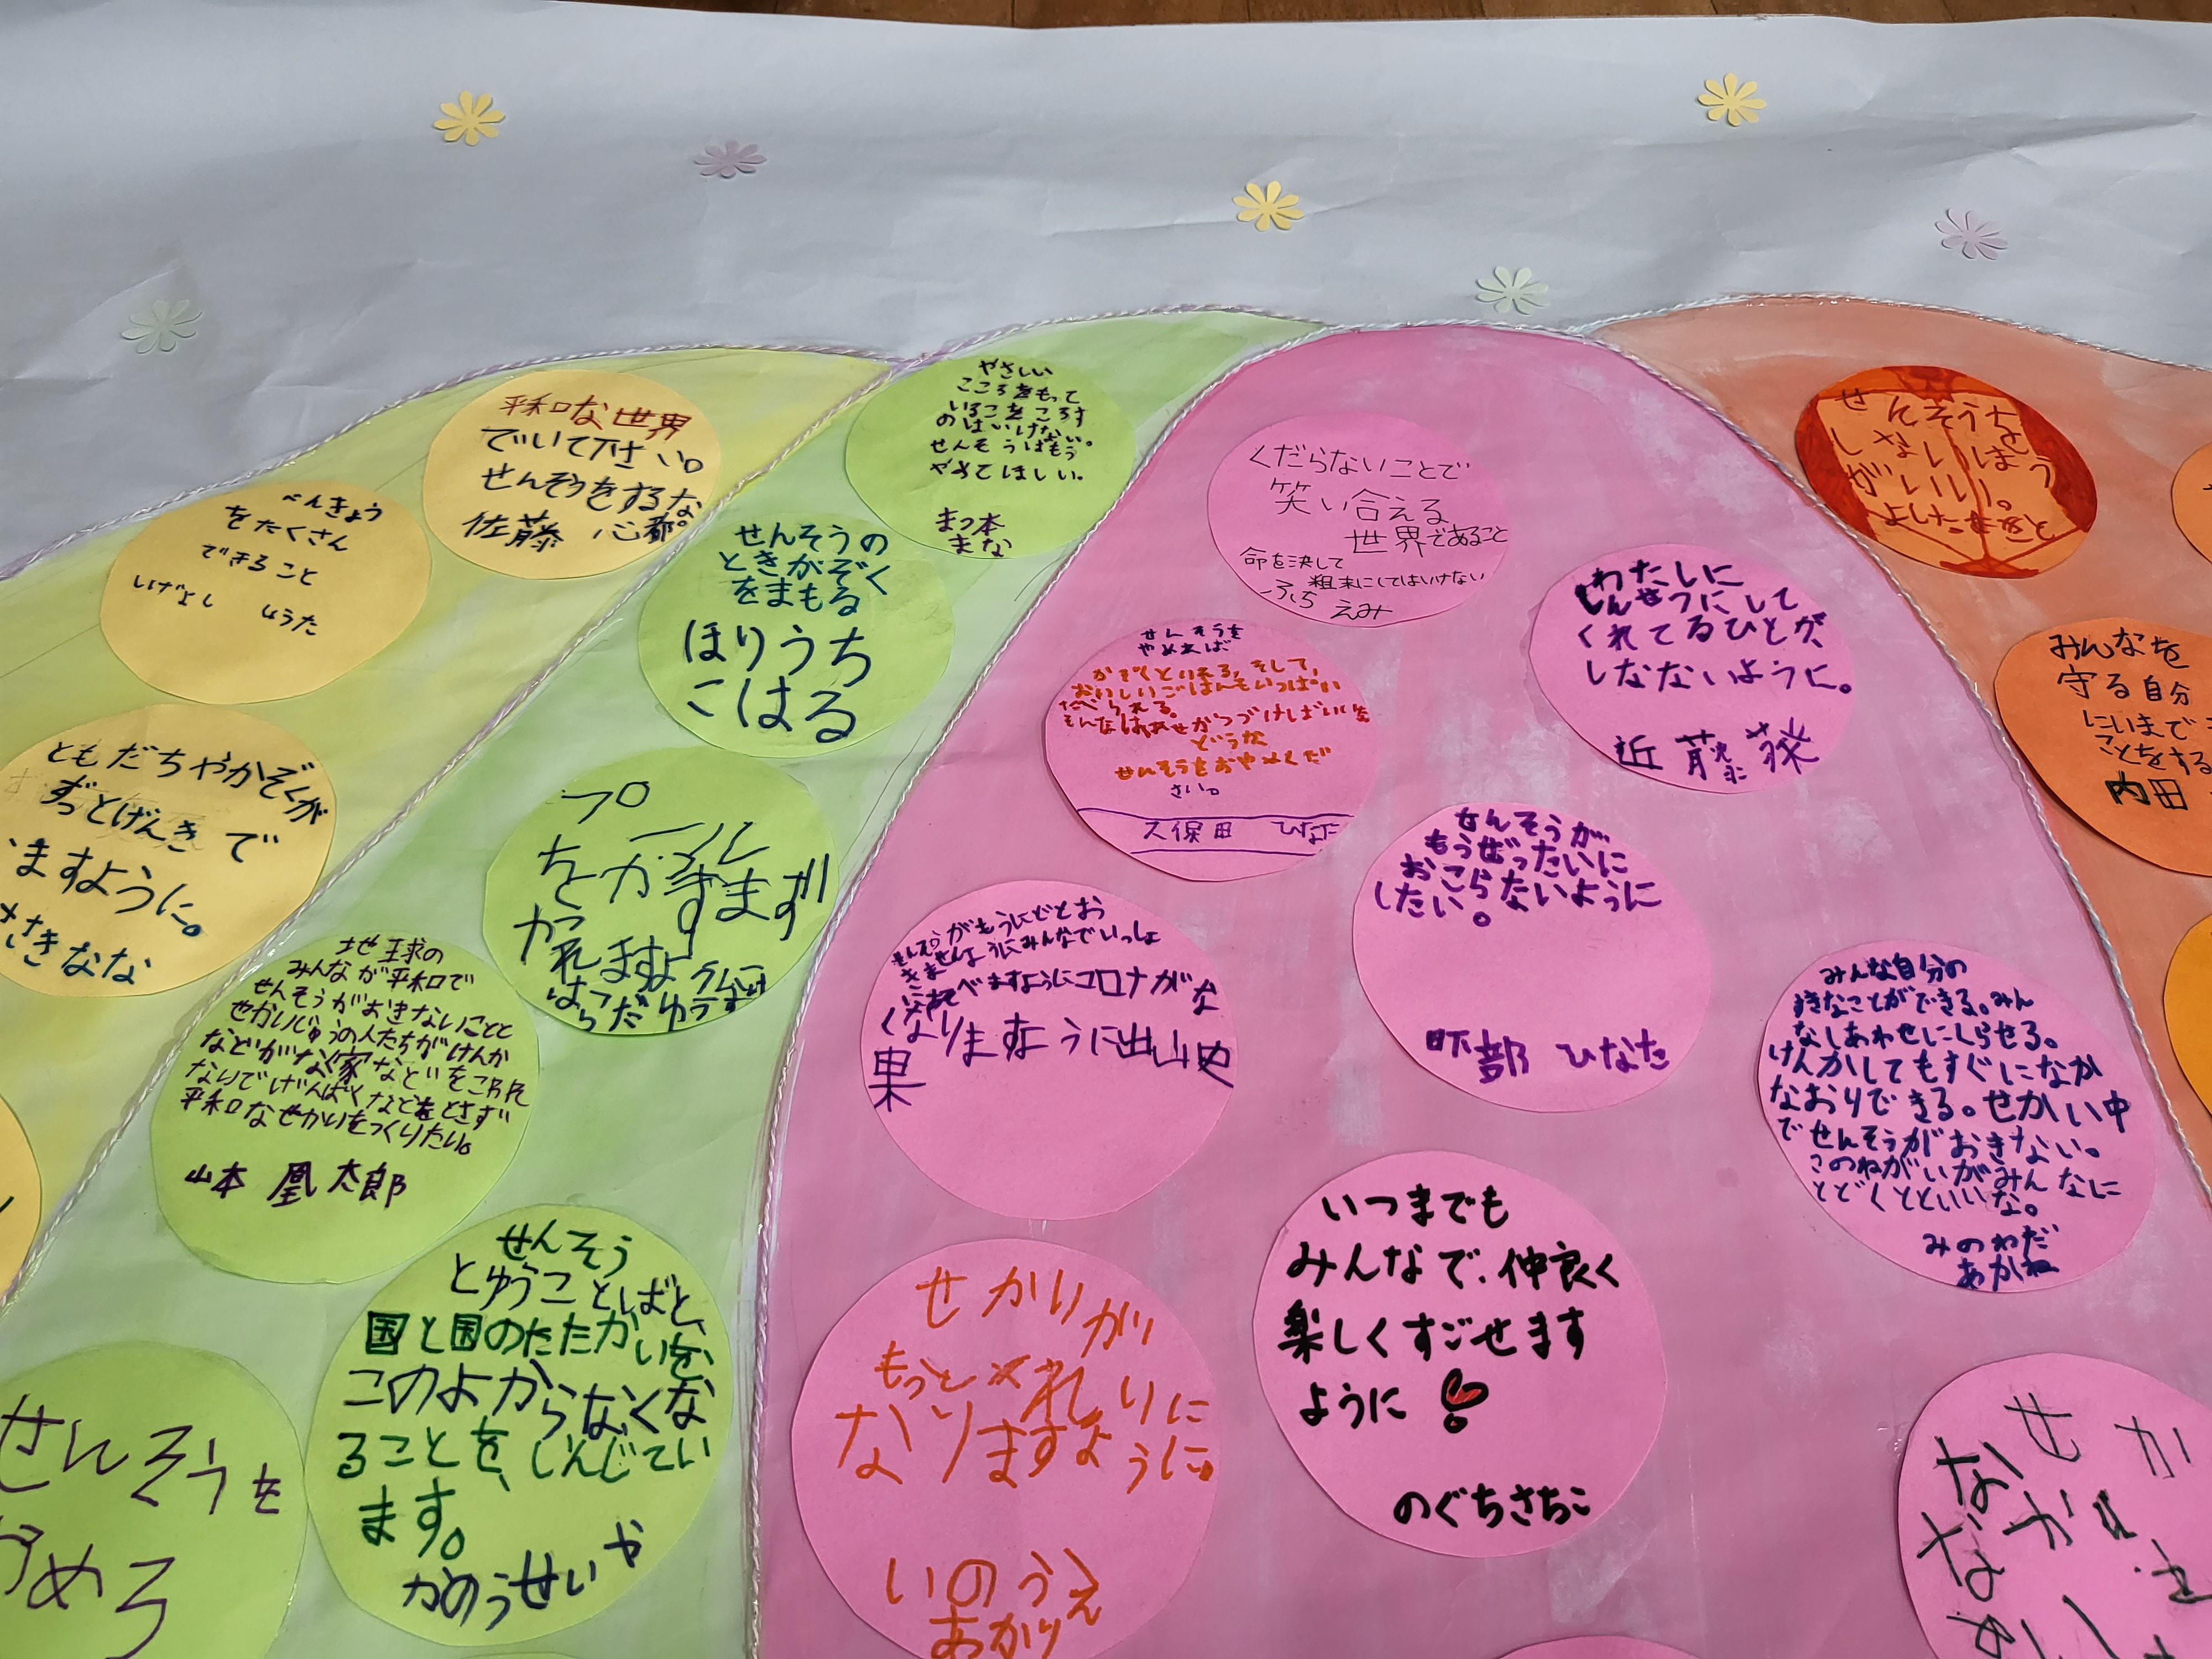 平和な世界
でいて下さい。
せんそうをするな
佐藤 心都
べんきょう
をたくさん
できること
いけよし ゆうた
ともだちやかぞくが
ずっとげんきで
いますように。
さきなな
やさしい
こころをもって
いるこをころす
のはいけない。
せんそうはもう
やめてほしい。
まつ本
まな
せんそうの
ときかぞく
をまもる
ほりうち
こはる
プ
ール
はらだ ゆうすけ
地球の
みんなが平和で
せんそうがおきないことと
せかいじゅうの人たちがけんか
などがなく家などをこわれ
ないでげんばくなどをとさず
平和なせかいをつくりたい。
山本 凰太郎
せんそう
とゆうことばと、
国と国のたたかいを
このよからなくな
ることを、しんじてい
ます。
かのうせいや
せんそうを
やめろ
くだらないことで
笑い合える
世界であること
命を決して
粗末にしてはいけない
ふち えみ
せんそうを
やめれば
かぞくといれる、そして、
おいしいごはんもいっぱい
たべられる。
そんなしあわせがつづけばいいな
どうか
せんそうをおやめくだ
さい。
久保田 ひなた
わたしに
しんせつにして
くれてるひとが、
しなないように。
近藤
せんそうがもうにどとお
きませんようにみんなでいっしょ
にあそべますようにコロナがな
くなりますように出山
果
せんそうが
もうぜったいに
おこらないように
したい。
阿部 ひなた
みんな自分の
すきなことができる。みん
なしあわせにくらせる。
けんかしてもすぐになか
なおりできる。せかい中
でせんそうがおきない。
このねがいがみんなに
とどくとといいな。
みのわだ
あかね
せかいが
もっときれいに
なりますように。
いのうえ
あかり
いつまでも
みんなで、仲良く
楽しくすごせます
ように
のぐちさちこ
せんそうを
しないほう
がいい。
みんなを
守る自分
にいまで
ことをする
内田